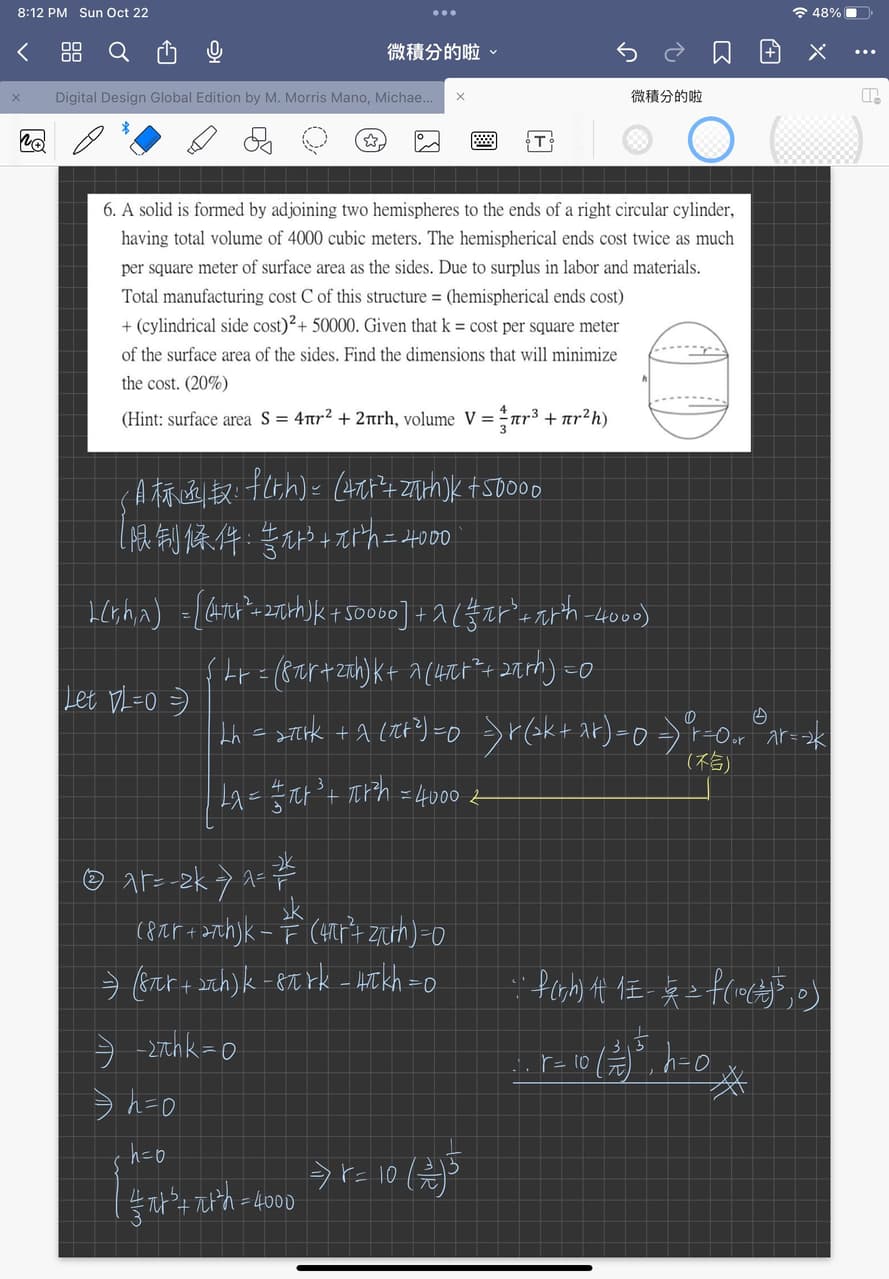 8:12 PM Sun Oct 22
48%
微積分的啦
Digital Design Global Edition by M. Morris Mano, Michae...
微積分的啦
6. A solid is formed by adjoining two hemispheres to the ends of a right circular cylinder,
having total volume of 4000 cubic meters. The hemispherical ends cost twice as much
per square meter of surface area as the sides. Due to surplus in labor and materials.
Total manufacturing cost C of this structure = (hemispherical ends cost)
+ (cylindrical side cost)²+ 50000. Given that k = cost per square meter
of the surface area of the sides. Find the dimensions that will minimize
the cost. (20%)
(Hint: surface area S = 4πr² + 2πrh, volume V = 4/3 πr³ + πr²h)
r
h
目标函数: f(r,h) = (4πr²+2πrh)k+50000
限制條件: 4/3 πr³+πr²h=4000
L(r,h,λ) =[(4πr²+2πrh)k+50000]+λ(4/3 πr³+πr²h-4000)
Let ∇L=0 ⇒
Lr = (8πr+2πh)k+ λ(4πr²+2πrh)=0
Lh = 2πrk + λ(πr²)=0 ⇒ r(2k+λr)=0 ⇒ ① r=0 or ② λr=-2k
(不合)
Lλ = 4/3 πr³+ πr²h =4000
② λr=-2k ⇒ λ= -2k/r
(8πr+2πh)k - 2k/r (4πr²+2πrh)=0
⇒ (8πr+2πh)k -8πrk -4πkh=0
⇒ -2πhk=0
⇒ h=0
h=0
4/3 πr³+πr²h=4000
⇒ r= 10 (3/π)^1/3
∵ f(r,h) 代 任一點 ≥ f(10(3/π)^1/3, 0)
∴ r= 10 (3/π)^1/3, h=0